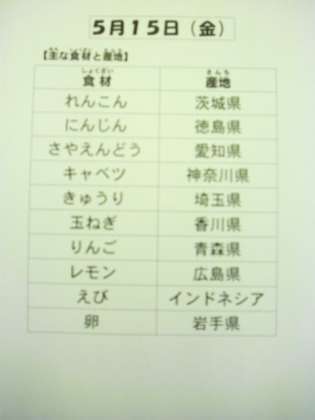 5月15日（金）
【主な食材と産地】
食材 産地
れんこん 茨城県
にんじん 徳島県
さやえんどう 愛知県
キャベツ 神奈川県
きゅうり 埼玉県
玉ねぎ 香川県
りんご 青森県
レモン 広島県
えび インドネシア
卵 岩手県